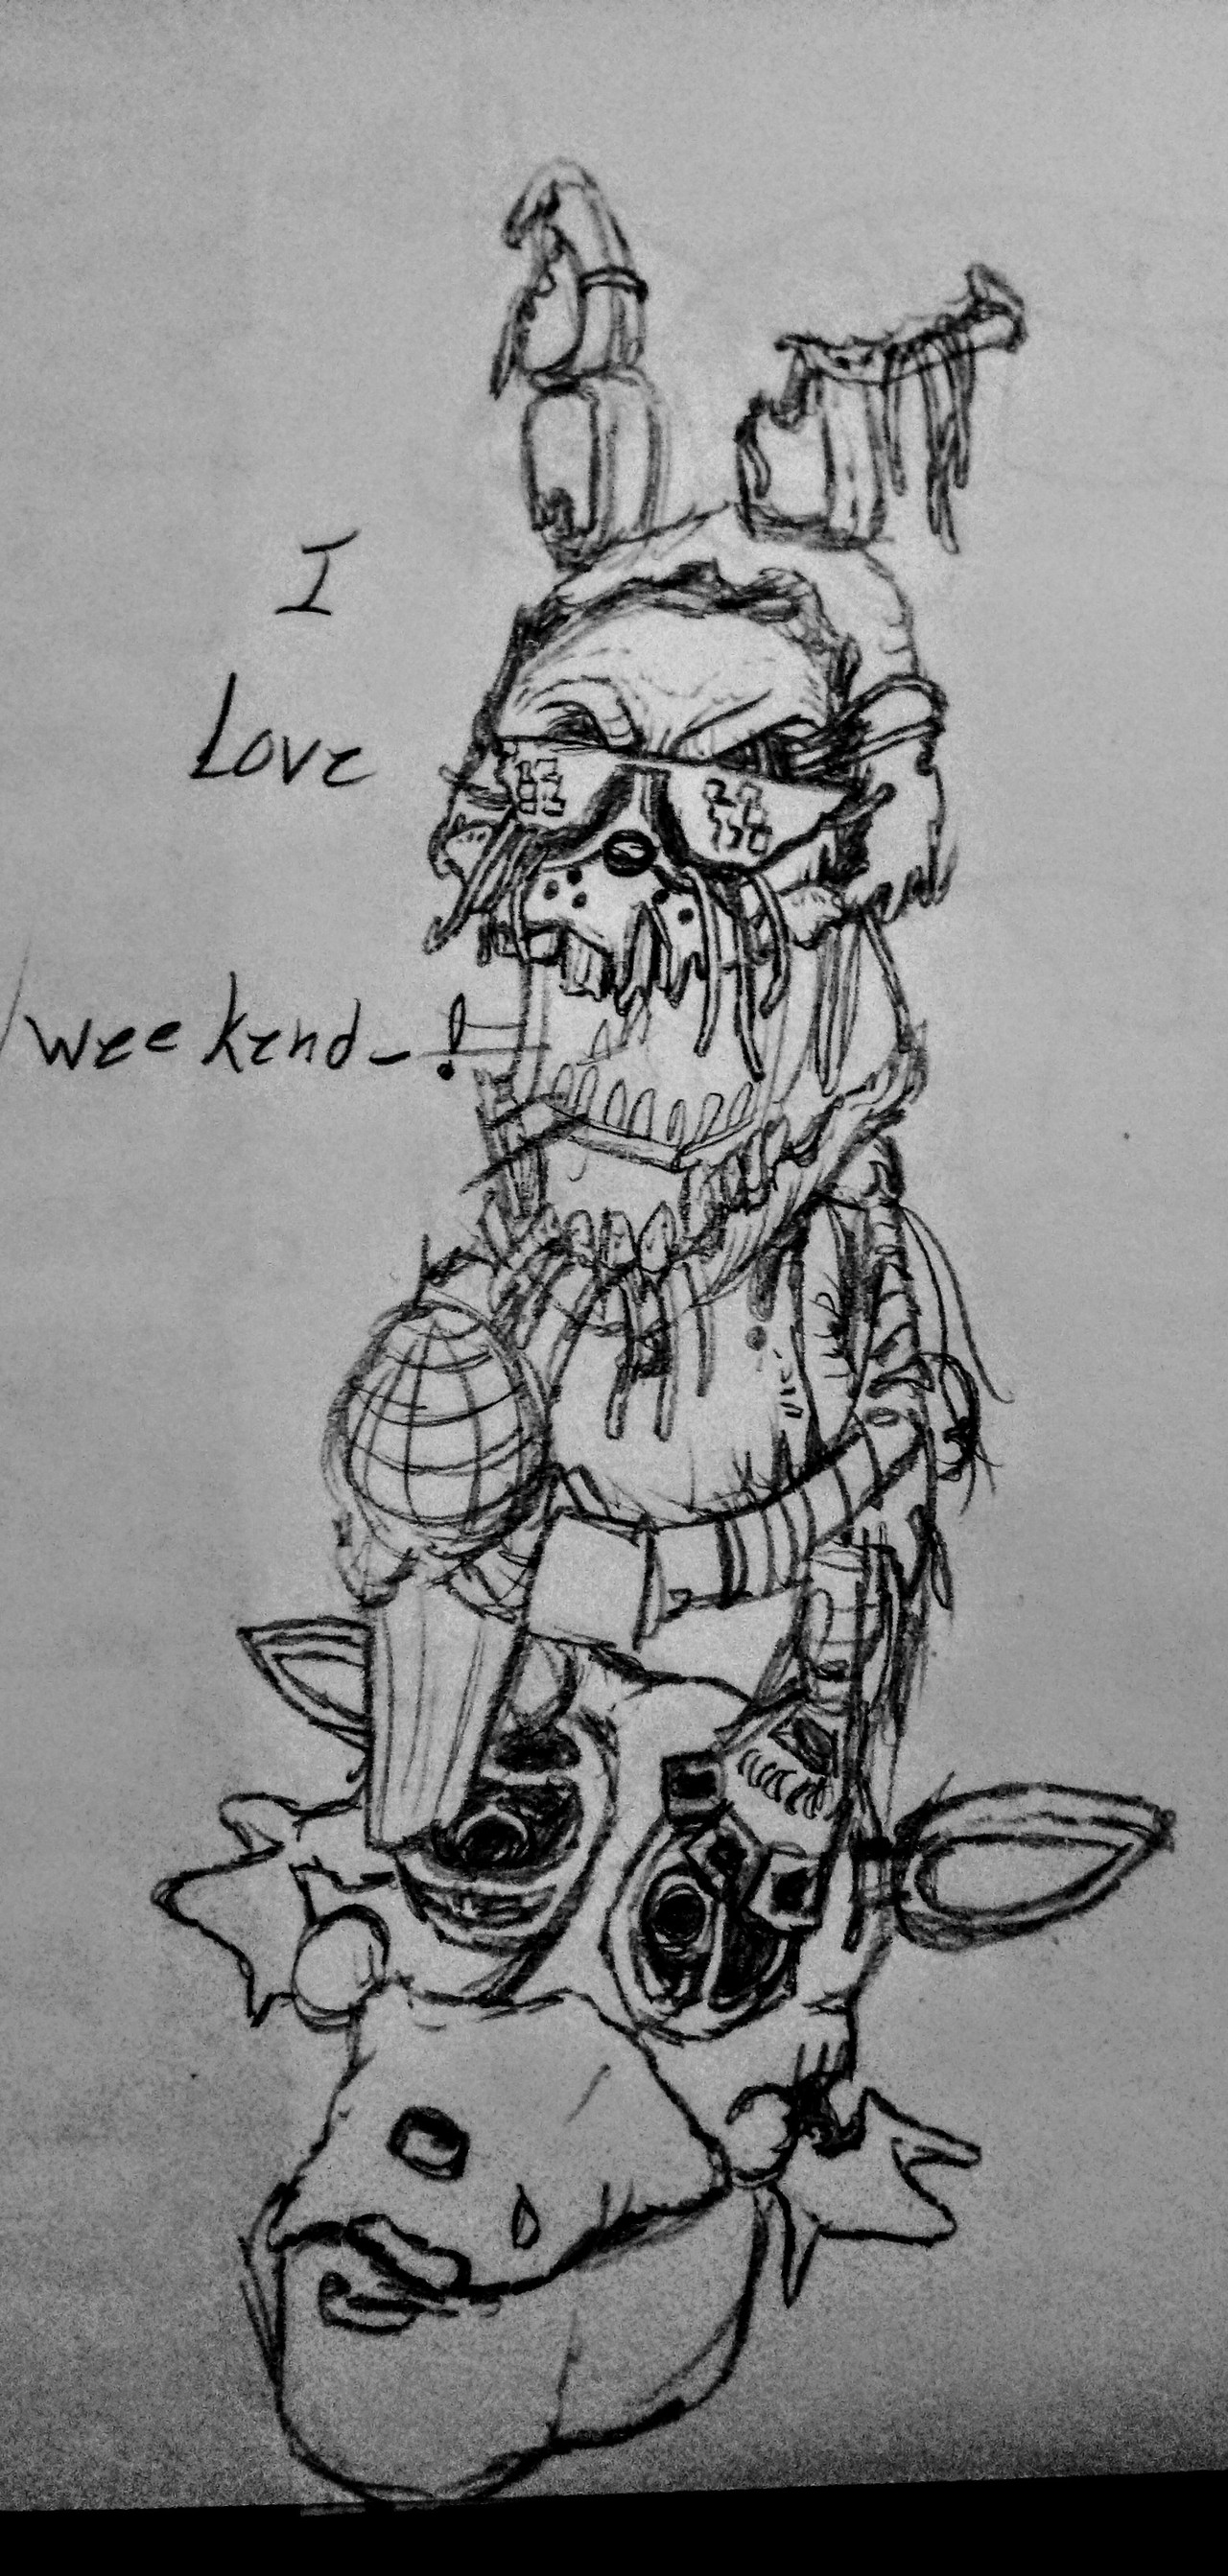 I
Love
weekend-!